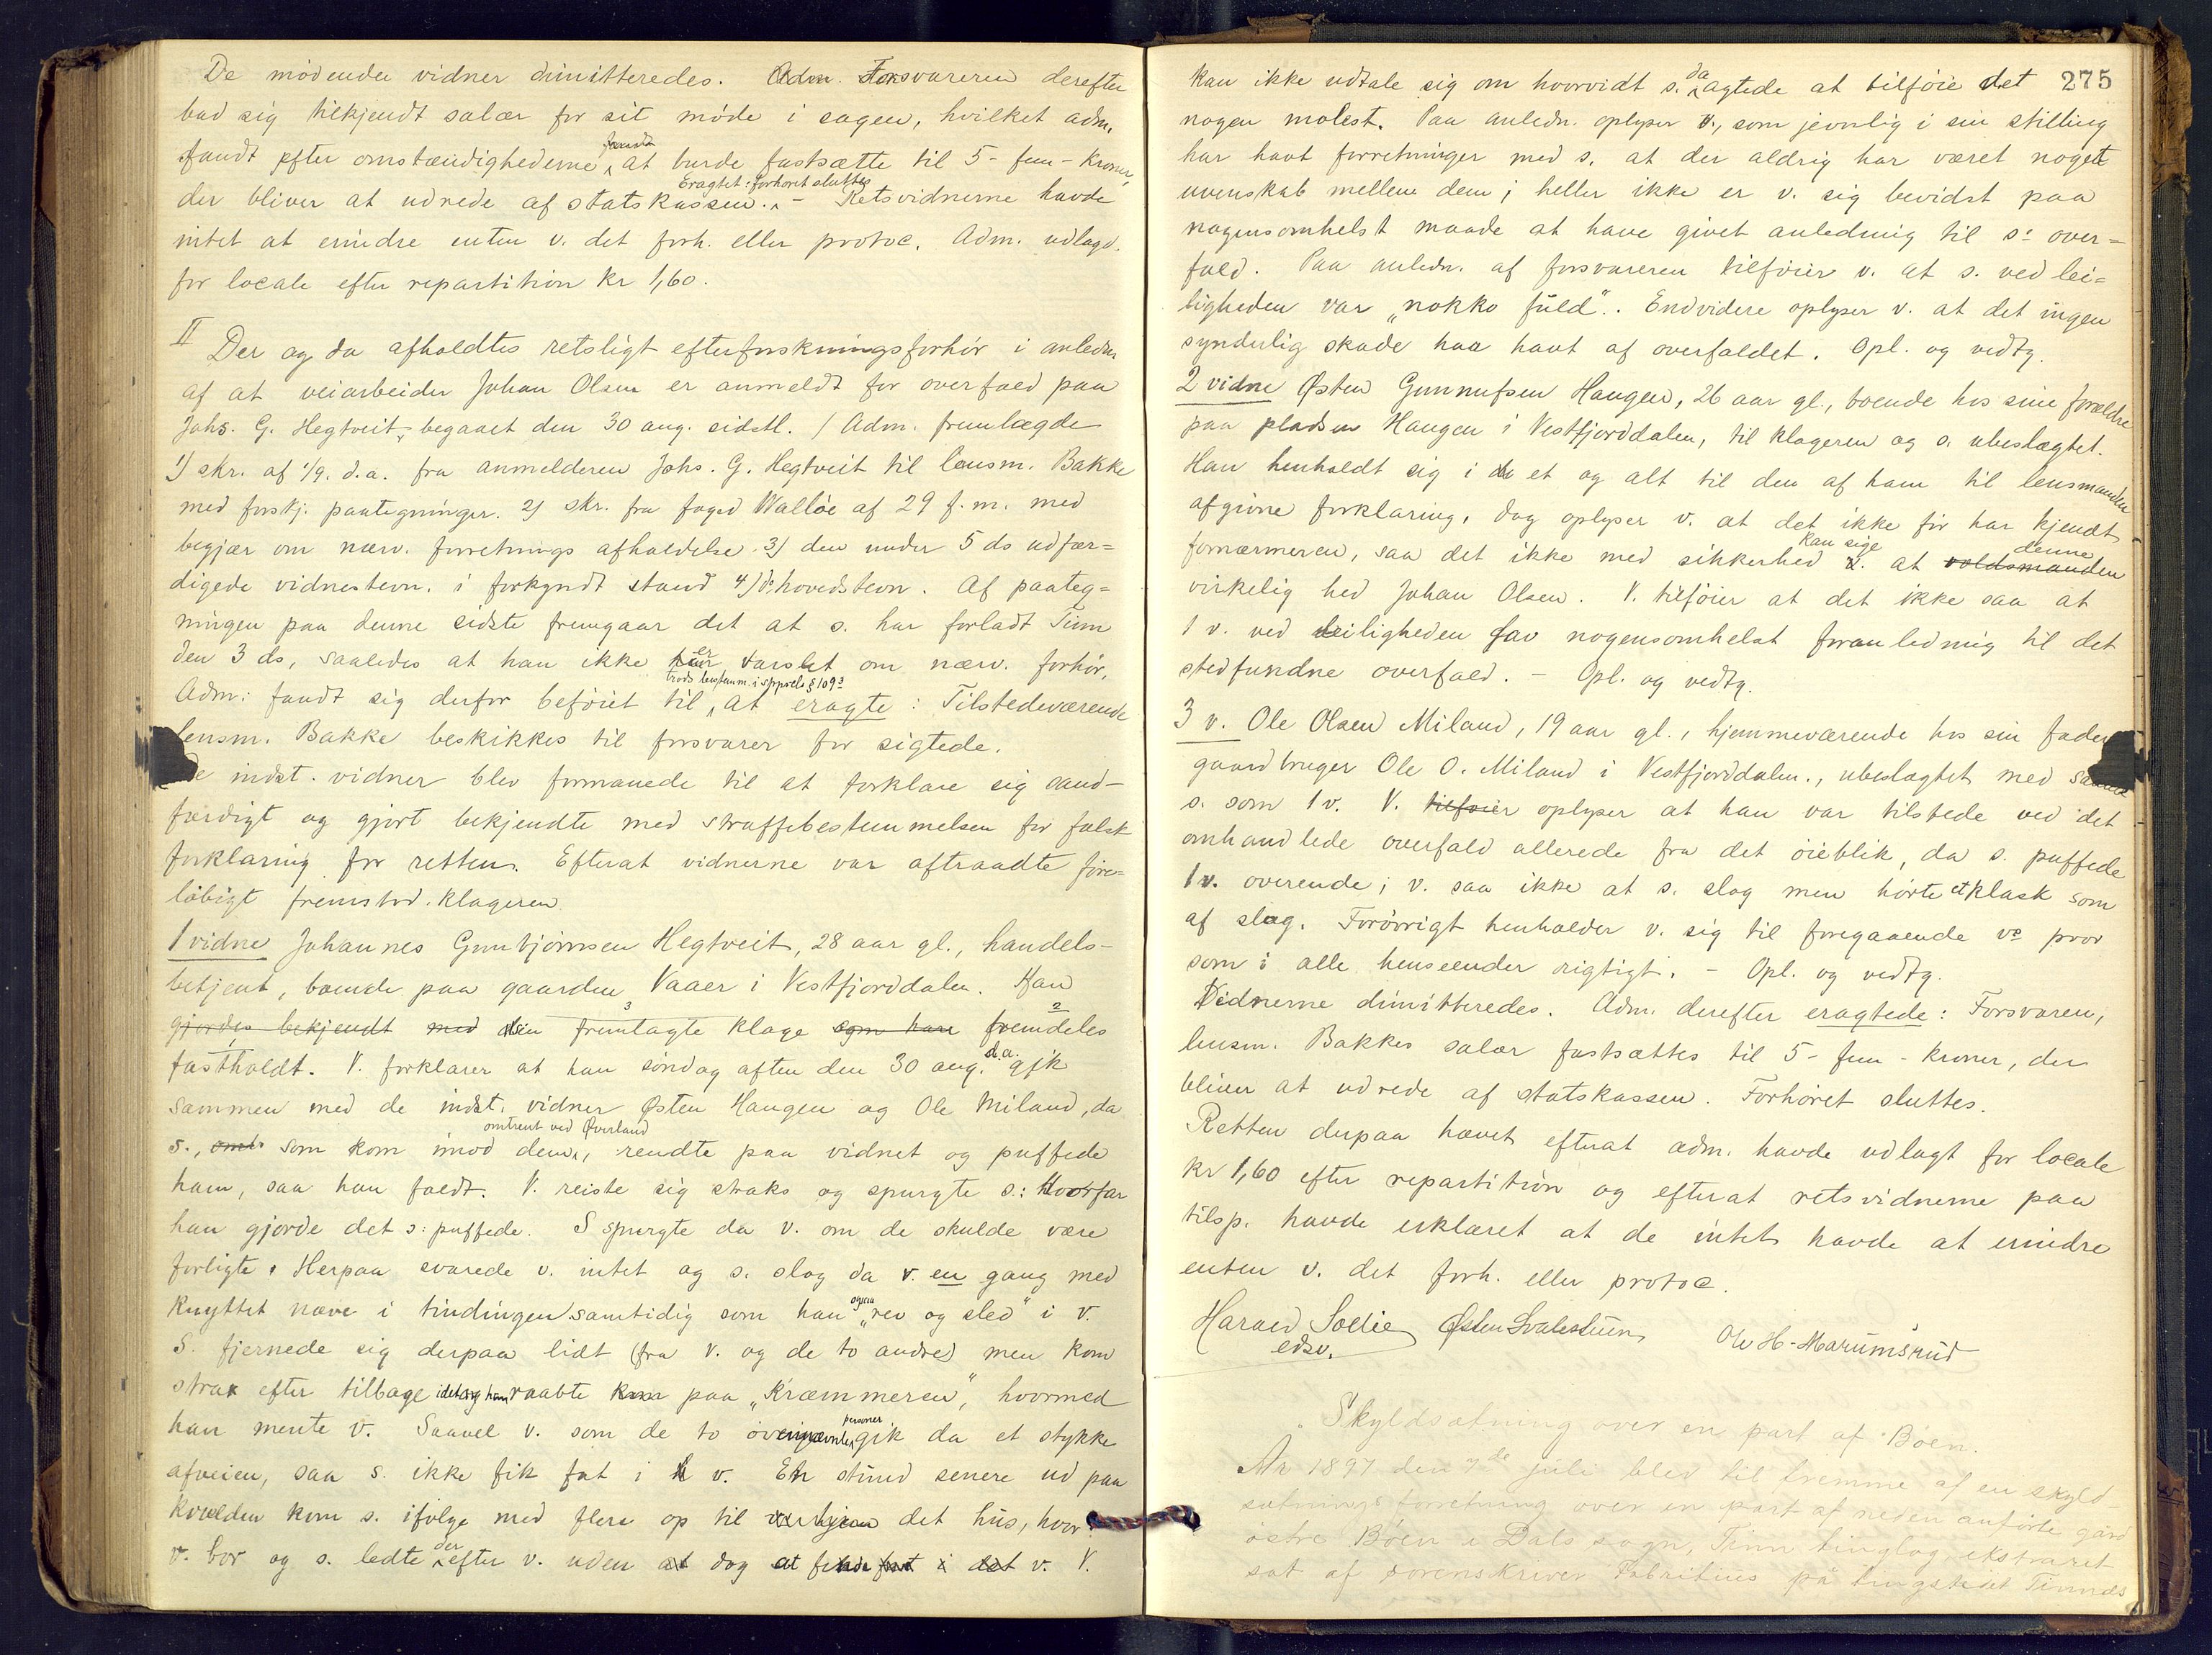 De mödende vidner dimitteredes. Adm. Forsvareren derefter
bad sig tilkjendt salær for sit möde i sagen, hvilket adm.
fandt efter omstændighederne at burde fastsætte til 5 - fem - kroner,
Eragtet: forhöret sluttes
der bliver at udrede af statskassen. - Retsvidnerne havde
intet at erindre enten v. det forh. eller protoc. Adm. udlagd.
for locale efter repartition kr 1,60.
II Der og da afholdtes retsligt efterforskningsforhör i anledn.
af at veiarbeider Johan Olsen er anmeldt for overfald paa
Johs. G. Hegtveit, begaaet den 30 aug. sidstl. / Adm. fremlægde
1) skr. af 1/9. d.a. fra anmelderen Johs. G. Hegtveit til lensm. Bakke
med forskj. paategninger. 2) skr. fra foged Wallöe af 29 f.m. med
begjær om nærv. forretnings afholdelse 3) den under 5 ds udfær=
digede vidnestevn. i forkyndt stand 4) do hovedstevn. Af paateg=
ningen paa denne sidste fremgaar det at s. har forladt Tinn
den 3 ds, saaledes at han ikke er varslet om nærv. forhör,
trods bestemm. i stpprcls § 109 2
Adm: fandt sig derfor beföiet til, at eragte: Tilstedeværende
lensm. Bakke beskikkes til forsvarer for sigtede.
De indst. vidner blev formanede til at forklare sig sand-
færdigt og gjort bekjendte med straffebestemmelsen for falsk
forklaring for retten. Efterat vidnerne var aftraadte före=
löbigt fremstod klageren
1 vidne Johannes Gunbjörnsen Hegtveit, 28 aar gl., handels-
betjent, boende paa gaarden Vaaer i Vestfjorddalen. Han
gjordes bekjendt med den fremlagte klage som han fremdeles
fastholdt. V. forklarer at han söndag aften den 30 aug. d.a. gik
sammen med de indst. vidner Østen Haugen og Ole Miland, da
omtrent ved Øverland
s., omt. som kom imod dem, rendte paa vidnet og puffede
ham, saa han faldt. V. reiste sig straks og spurgte s: hvorfor
han gjorde det s: puffede. S spurgte da v. om de skulde være
forligte. Herpaa svarede v. intet og s. slog da v. en gang med
knyttet næve i tindingen samtidig som han ogsaa „rev og sled" i v.
S. fjernede sig derpaa lidt (fra v. og de to andre) men kom
strax efter tilbage idet han raabte paa „Kræmmeren", hvormed
han mente v. Saavel v. som de to övrignævnte personer gik da et stykke
afveien, saa s. ikke fik fat i v. En stund senere ud paa
kvælden kom s. ifölge med flere op til det hus, hvor
v. bor og s. ledte der efter v. uden dog at finde v. V.
275
kan ikke udtale sig om hvorvidt s. da agtede at tilföie det
nogen molest. Paa anledn. oplyser v., som jevnlig i sin stilling
har havt forretninger med s. at der aldrig har været noget
uvenskab mellem dem; heller ikke er v. sig bevidst paa
nogensomhelst maade at have givet anledning til s: over=
fald. Paa anledn. af forsvareren tilföier v. at s. ved lei=
ligheden var „nokko full". Endvidere oplyser v. at det ingen
synderlig skade har havt af overfaldet. Opl. og vedtg.
2 vidne Østen Gunnufsen Haugen, 26 aar gl., boende hos sine forældre
paa pladsen Haugen i Vestfjorddalen, til klageren og s. ubeslægtet.
Han henholdt sig i et og alt til den af ham til lensmanden
afgivne forklaring, dog oplyser v. at det ikke för har kjendt
kan sige denne
fornærmeren, saa det ikke med sikkerhed at voldsmanden
virkelig hed Johan Olsen. V. tilföier at det ikke saa at
1 v. ved leiligheden gav nogensomhelst foranledning til det
stedfundne overfald. - Opl. og vedtg.
3 v. Ole Olsen Miland, 19 aar gl., hjemmeværende hos sin fader
gaardbruger Ole O. Miland i Vestfjorddalen., ubeslægtet med saavel
s. som 1 v. V. tilföier oplyser at han var tilstede ved det
omhandlede overfald allerede fra det öieblik, da s. puffede
1 v. overende; v. saa ikke at s. slog men hörte et klask som
af slag. Forövrigt henholder v. sig til foregaaende vs prov
som i alle henseender rigtigt. - Opl. og vedtg.
Vidnerne dimitteredes. Adm. derefter eragtede: Forsvaren,
lensm. Bakkes salær fastsættes til 5 - fem - kroner, der
bliver at udrede af statskassen. Forhöret sluttes.
Retten derpaa hævet efterat adm. havde udlagt for locale
kr 1,60 efter repartition og efterat retsvidnerne paa
tilsp. havde erklæret at de intet havde at erindre
enten v. det forh. eller protoc.
Harald Sollie Østen Svalestuen Ole H. Marumsrud
edsv.
Skyldsætning over en part af Böen.
År 1897 den 7de juli blev til fremme af en skyld-
sætningsforretning over en part af neden anförte gård
östre Böen i Dals sogn, Tinn tinglag ekstraret
sat af sorenskriver Fabritius på tingstedet Tinnæs